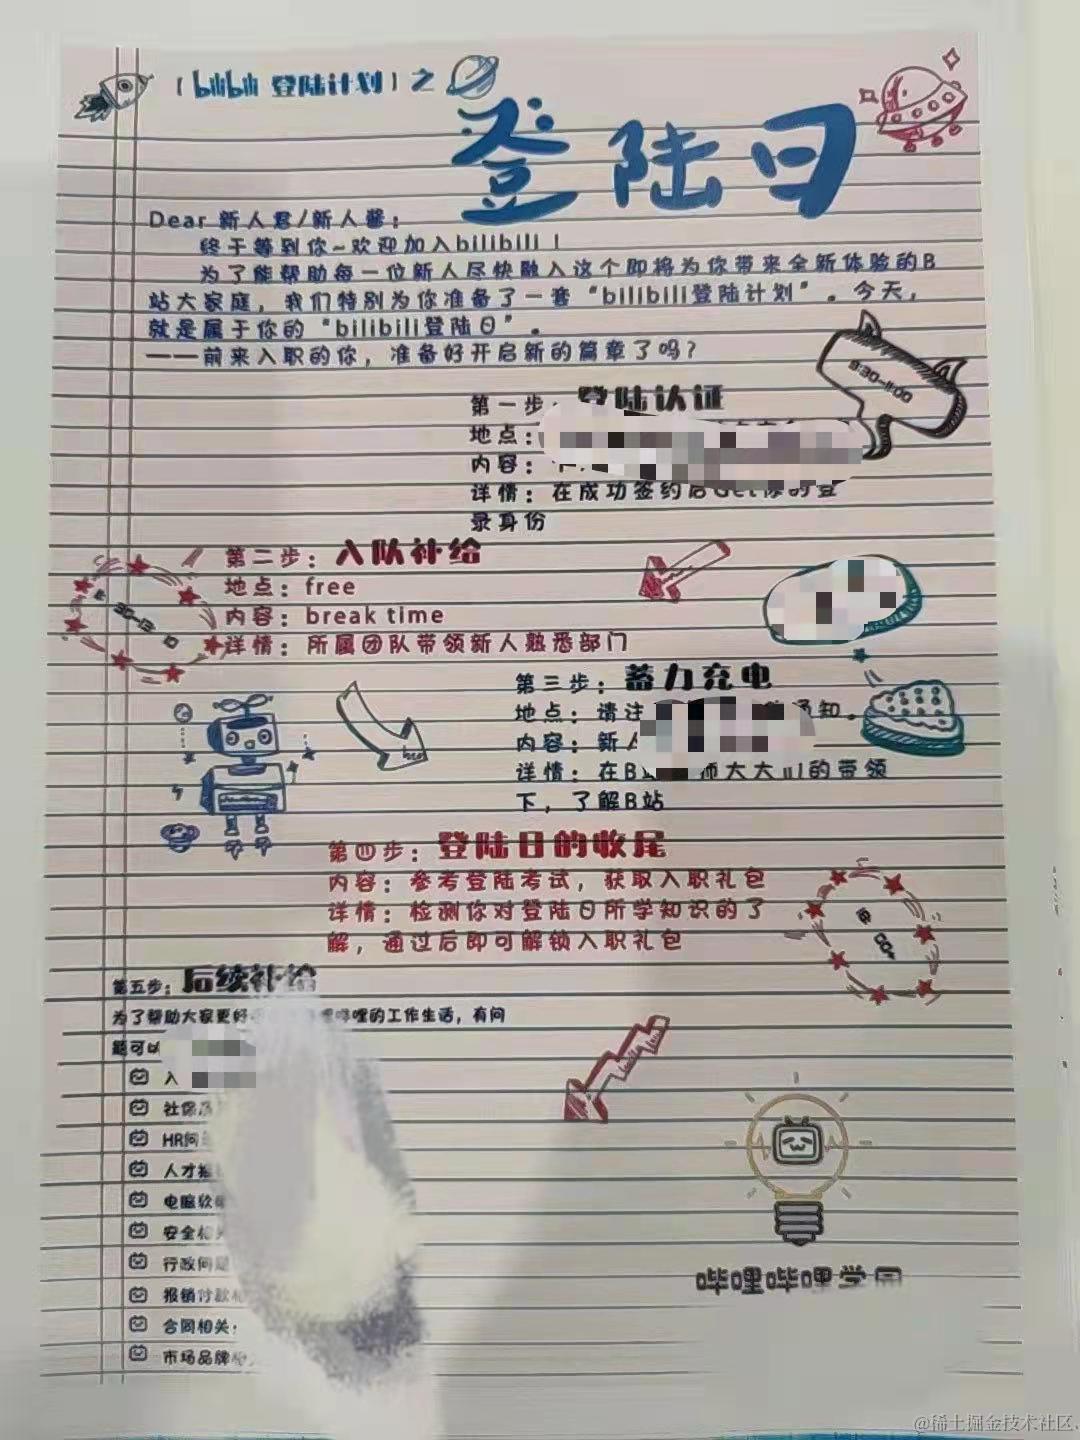 【bilibili 登陆计划】之
登陆日
Dear 新人君/新人酱：
终于等到你~欢迎加入bilibili！
为了能帮助每一位新人尽快融入这个即将为你带来全新体验的B
站大家庭，我们特别为你准备了一套“bilibili登陆计划”。今天，
就是属于你的“bilibili登陆日”。
——前来入职的你，准备好开启新的篇章了吗？
9:30-11:00
第一步：登陆认证
地点：
内容：
详情：在成功签约后Get你的登
录身份
第二步：入队补给
地点：free
内容：break time
详情：所属团队带领新人熟悉部门
第三步：蓄力充电
地点：请注 通知。
内容：新人
详情：在B站 师大大们的带领
下，了解B站
第四步：登陆日的收尾
内容：参考登陆考试，获取入职礼包
详情：检测你对登陆日所学知识的了
解，通过后即可解锁入职礼包
第五步：后续补给
为了帮助大家更好 哩哔哩的工作生活，有问
题可以
入
社保
HR问
人才
电脑软
安全相
行政问题
报销付款
合同相关：
市场品牌
哔哩哔哩学园
@稀土掘金技术社区